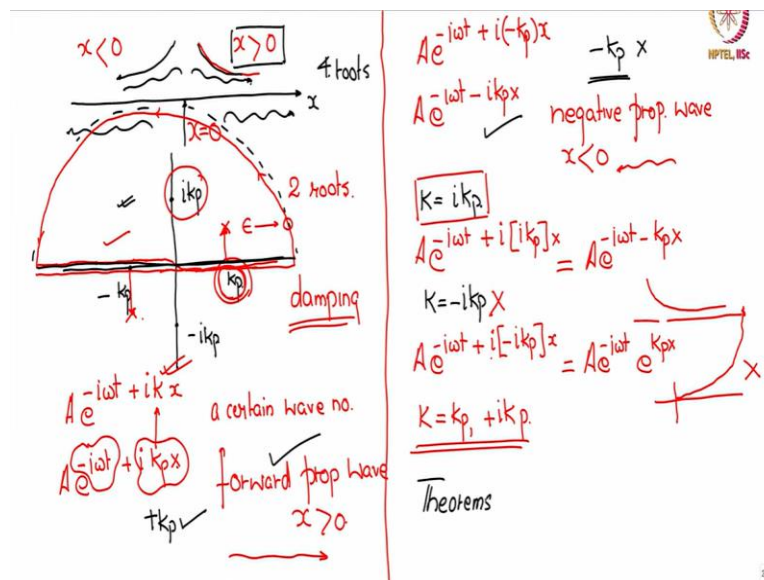 x<0
x>0
4 roots
x
x=0
ikp
2 roots.
x ϵ→0
-kp
x
kp
damping
-ikp
Ae^-iωt+ikx
a certain wave no.
Ae^-iωt+ikpx
forward prop wave
+kp ✓
x>0
Ae^-iωt+i(-kp)x
-kp x
Ae^-iωt-ikpx
✓
negative prop. wave
x<0
K=ikp
Ae^-iωt+i[ikp]x = Ae^-iωt-kpx
K=-ikp X
Ae^-iωt+i[-ikp]x = Ae^-iωt e^kpx
X
K=kp, +ikp.
Theorems
NPTEL, IISc